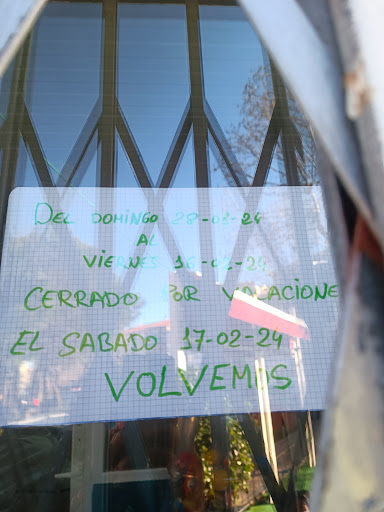 DEL DOMINGO 28-01-24
AL
VIERNES 16-02-24
CERRADO POR VACACIONE
EL SABADO 17-02-24
VOLVEMOS